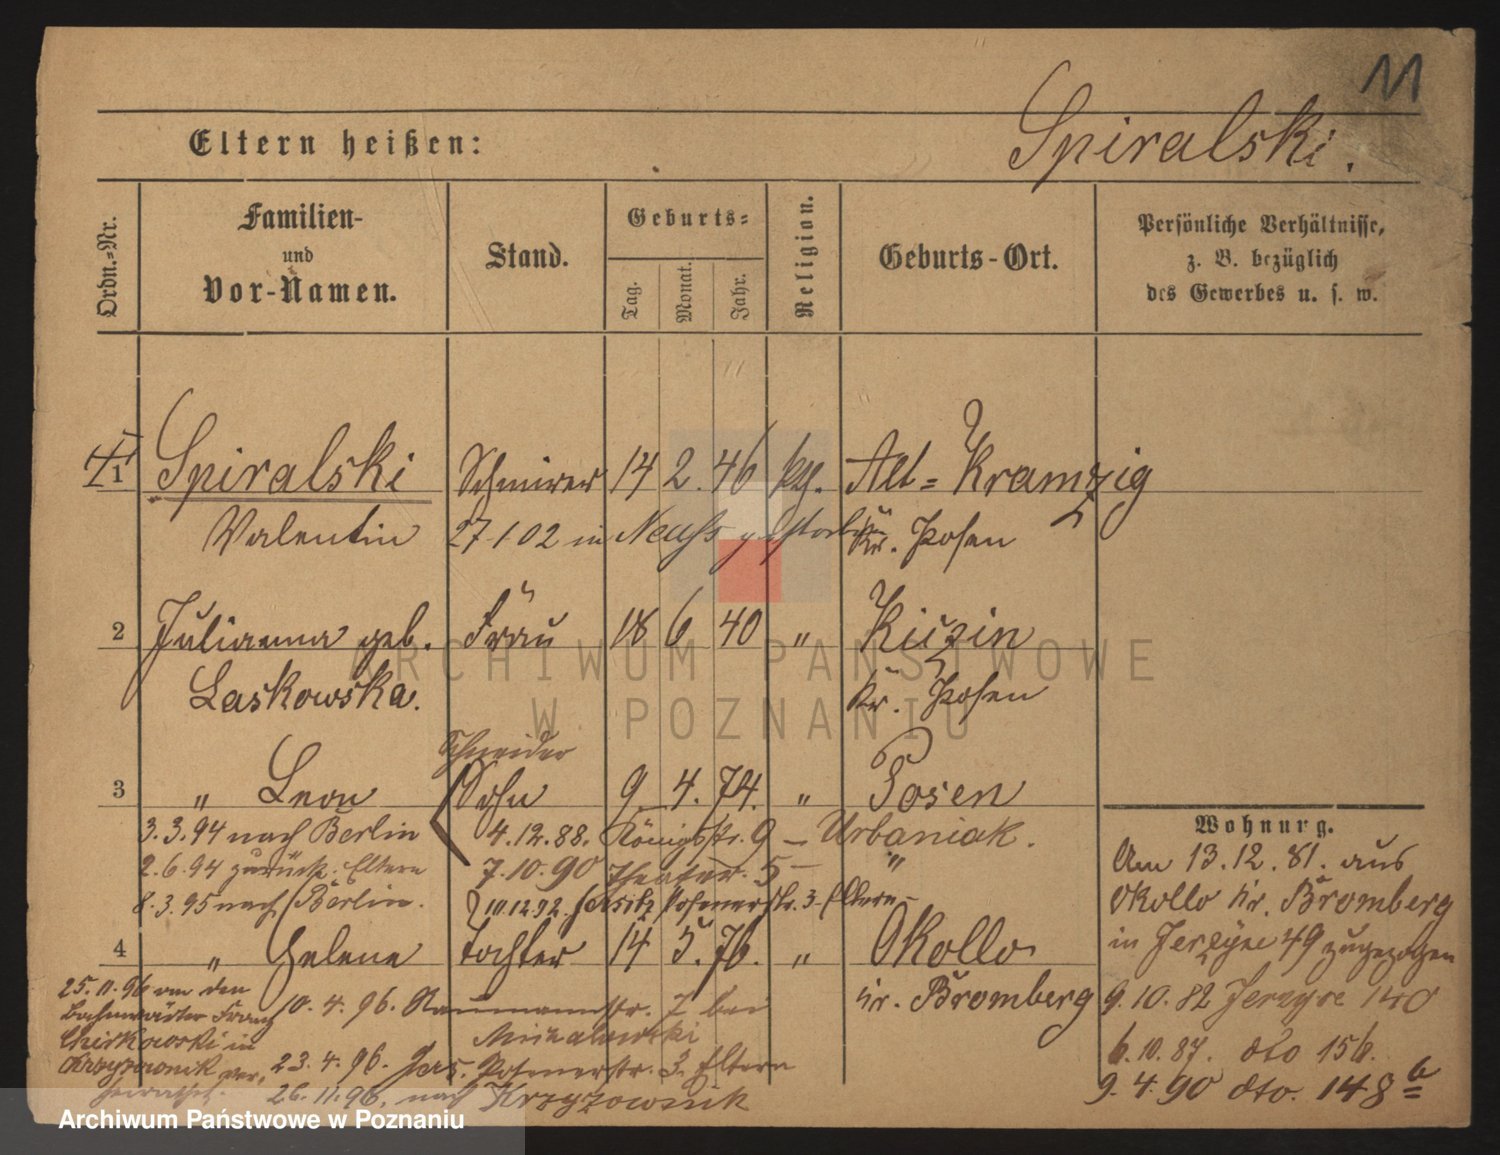 11
Eltern heißen:
Spiralski.
Ordn.-Nr.
Familien-
und
Vor-Namen.
Stand.
Geburts-
Tag.
Monat.
Jahr.
Religion.
Geburts-Ort.
Persönliche Verhältnisse,
z. B. bezüglich
des Gewerbes u. s. w.
1 Spiralski Schmirer 14 2. 46 ktg. Alt-Kramzig
Valentin 27 1 02 in Neuss gestorben Kr. Posen
2 Julianna geb. Frau 18 6 40 " Kiczin
Laskowska. Kr. Posen
Schneider
3 " Leon Sohn 9 4. 74. " Posen
3.3.94 nach Berlin 4.12.88. Königsstr. 9 - Urbaniak.
2.6.94 zurück. Eltern 7.10.90 Theater. 5 - "
8.3.95 nach Berlin. 10.12.92. Jersitz Posenerstr. 3 - Eltern -
4 " Helene Tochter 14 5. 76. " Okollo
Kr. Bromberg
25.11.96 an den
Bahnwärter Franz
in
Krzyzownik ver-
heirathet.
10.4.96. Naumannstr. 7 bei
23.4.96. Jers. Posenerstr. 3 Eltern
26.11.96. nach Krzyzownik
Wohnung.
Am 13.12.81. aus
Okollo Kr. Bromberg
in Jerzyce 49 zugezogen
9.10.82 Jerzyce 140
6.10.87. dto 156.
9.4.90 dto. 148 b
ARCHIWUM PAŃSTWOWE
W POZNANIU
Archiwum Państwowe w Poznaniu